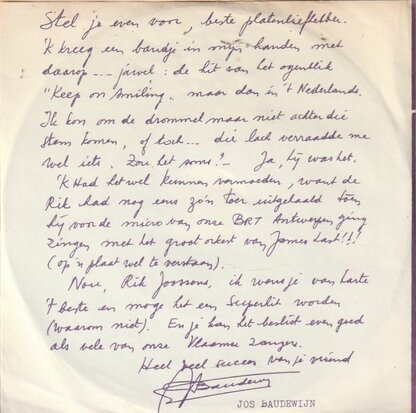 Stel je even voor, beste platenliefhebber.
'k kreeg een bandje in mijn handen met
daarop --- jawel : de hit van het ogenblik
"Keep on smiling" maar dan in 't Nederlands.
Ik kon om de drommel maar niet achter die
stem komen, of toch... die lach verraadde me
wel iets. Zou het soms? - Ja, hij was het.
'k Had het wel kunnen vermoeden, want de
Rik had nog eens zo'n toer uitgehaald toen
hij voor de micro van onze BRT Antwerpen ging
zingen met het groot orkest van James Last!!!
(op 'n plaat wel te verstaan).
Nou, Rik Joossens, ik wens je van harte
't beste en moge het een superhit worden
(waarom niet). En je kan het beslist even goed
als vele van onze Vlaamse zangers.
Heel veel succes van je vriend
JBaudewijn
JOS BAUDEWIJN